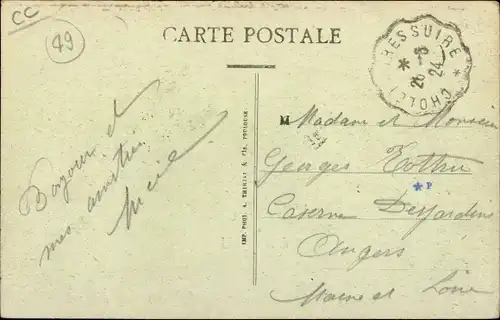 CC
49
CARTE POSTALE
BRESSUIRE
*
26-8
24
CHOLET
*
Bonjour et
mes amitiés
IMP. PHOT. A. THIRIAT & Cie, TOULOUSE
M Madame et Monsieur
Georges
*P
Caserne Desjardins
Angers
Maine et Loire